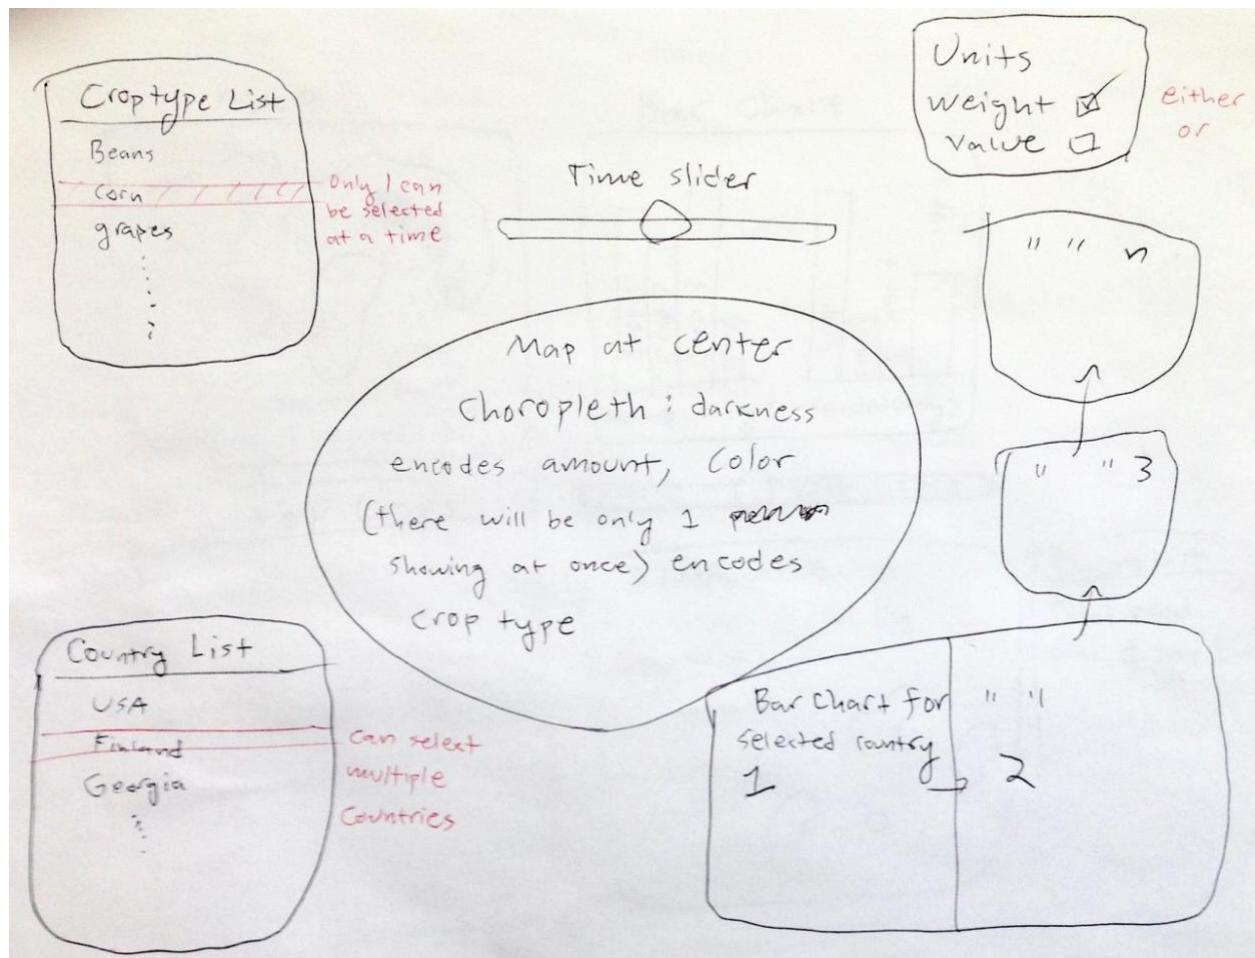 Croptype List
Beans
Corn
grapes
only 1 can
be selected
at a time
Time slider
Units
Weight
Value
either
or
Map at center
Choropleth : darkness
encodes amount, color
(there will be only 1
showing at once) encodes
crop type
" " n
" " 3
Country List
USA
Finland
Georgia
can select
multiple
countries
Bar Chart for
selected country
1
" "
2